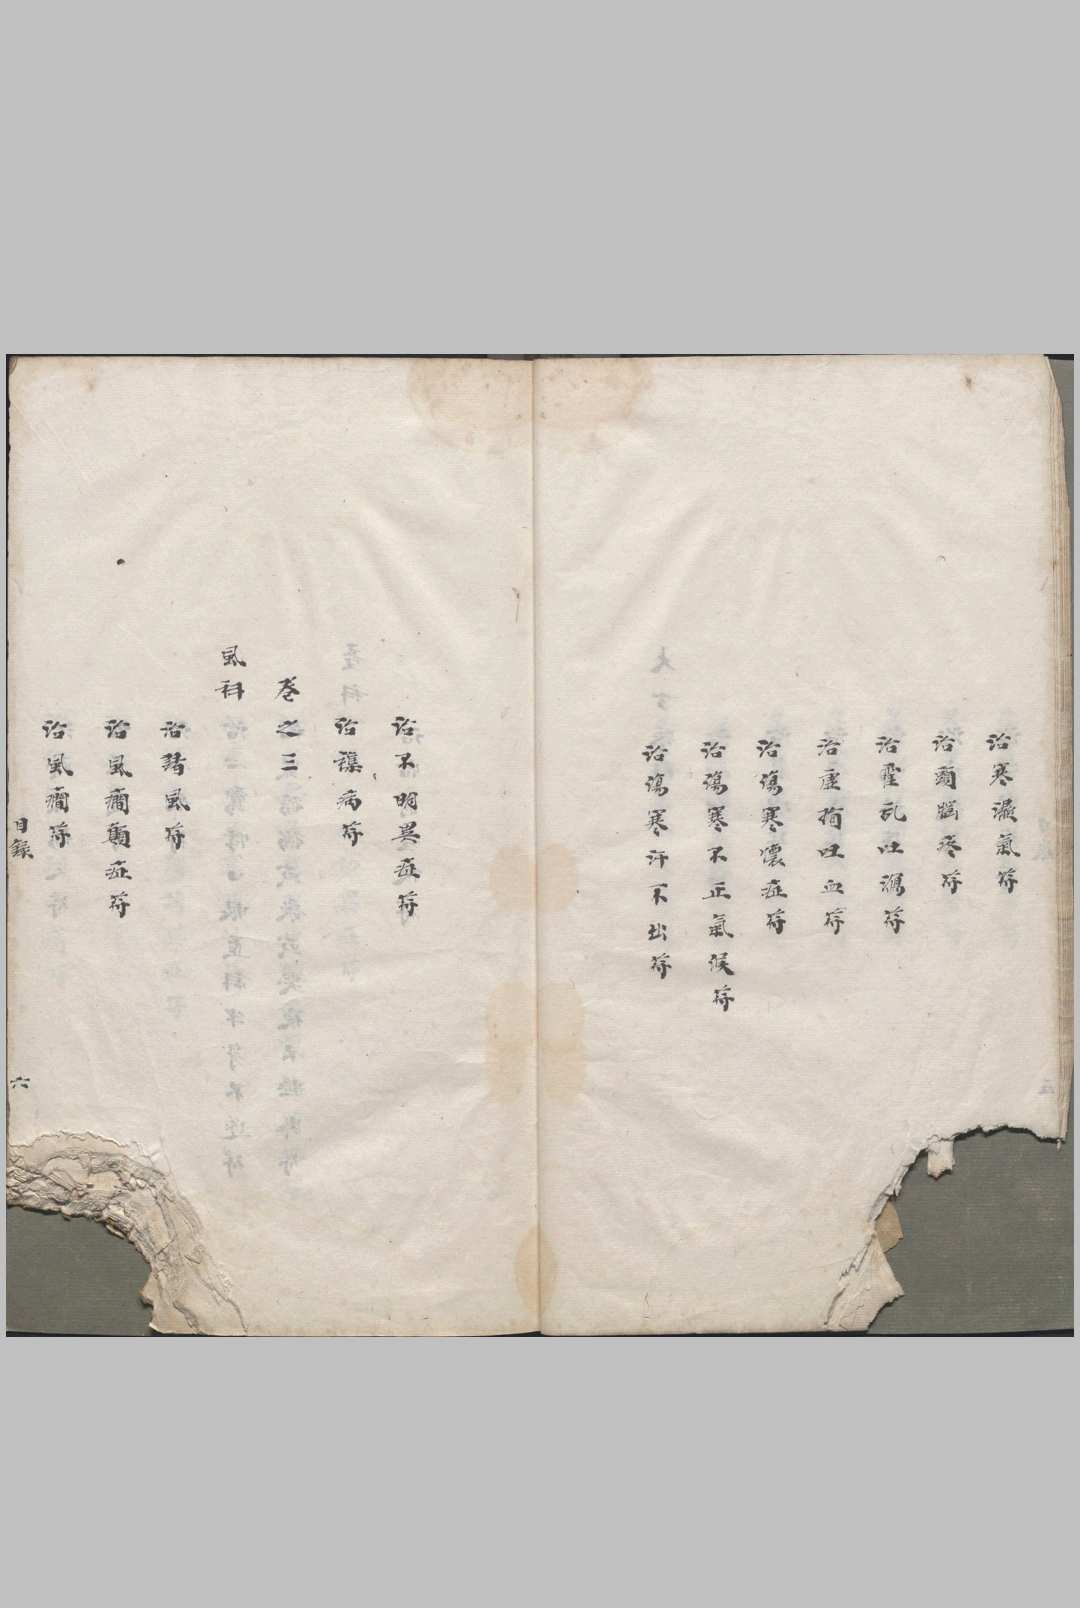 治寒濕氣符
治頭腦疼符
治霍乱吐瀉符
治虛損吐血符
治傷寒壞症符
治傷寒不正氣候符
治傷寒汗不出符
治不明異症符
治襍病符
卷之三
風科
治諸風符
治風癎症符
治風癎符
目錄
六